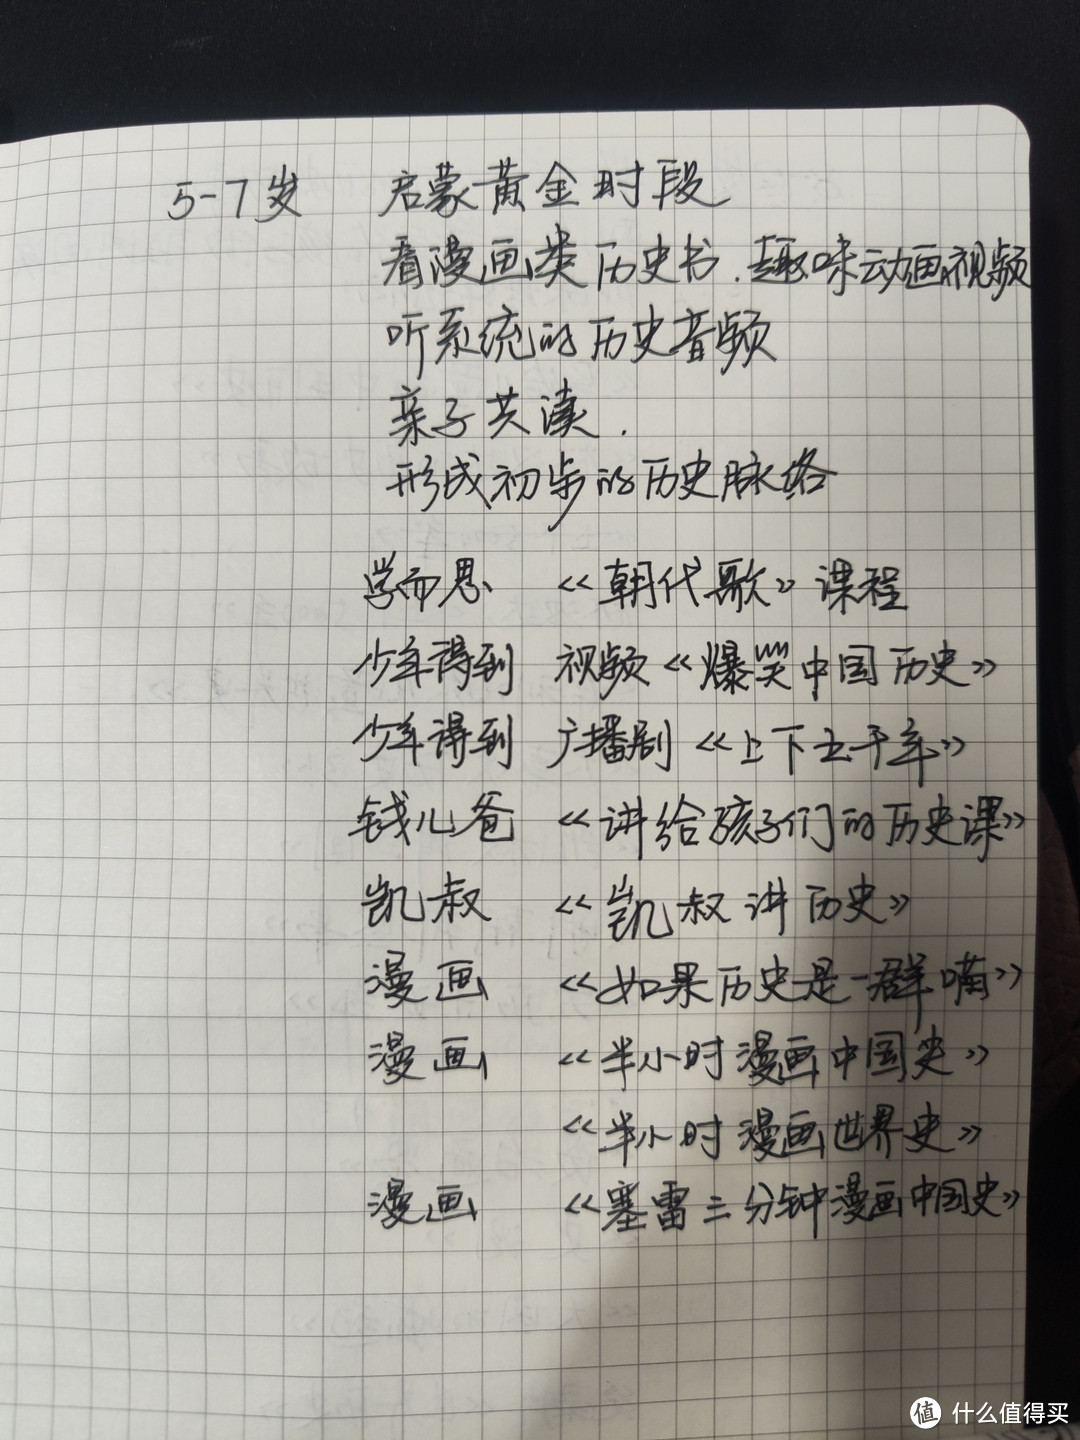 5-7岁 启蒙黄金时段
看漫画类历史书.趣味动画视频
听系统的历史音频
亲子共读.
形成初步的历史脉络
学而思 《朝代歌》课程
少年得到 视频《爆笑中国历史》
少年得到 广播剧《上下五千年》
钱儿爸 《讲给孩子们的历史课》
凯叔 《凯叔讲历史》
漫画 《如果历史是一群喵》
漫画 《半小时漫画中国史》
《半小时漫画世界史》
漫画 《塞雷三分钟漫画中国史》
值 什么值得买